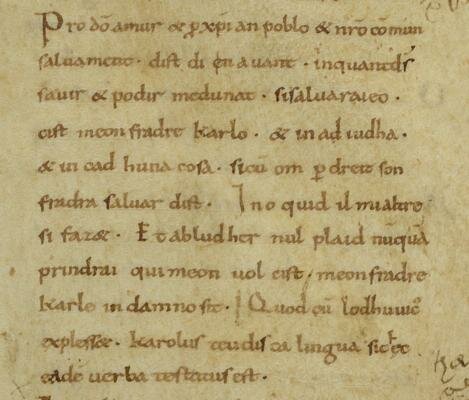 Pro dõ amur & ꝓ xp̃ian poblo & nr̃o cõmun
saluament · dist di en auant · inquantdS̄
sauir & podir medunat · sisaluaraieo ·
cist meon fradre karlo · & in adiudha ·
& in cad huna cosa · sicũ om ꝑ dreit son
fradra saluar dift · Ino quid il mialtre
si faz& · Et abludher nul plaid nũquã
prindrai qui meon uol cist · meonfradre
karle in damno sit · Quod cũ lodhuuicꝰ
explesset · karolus teudisca lingua sic ec
eadẽ uerba testatus est ·